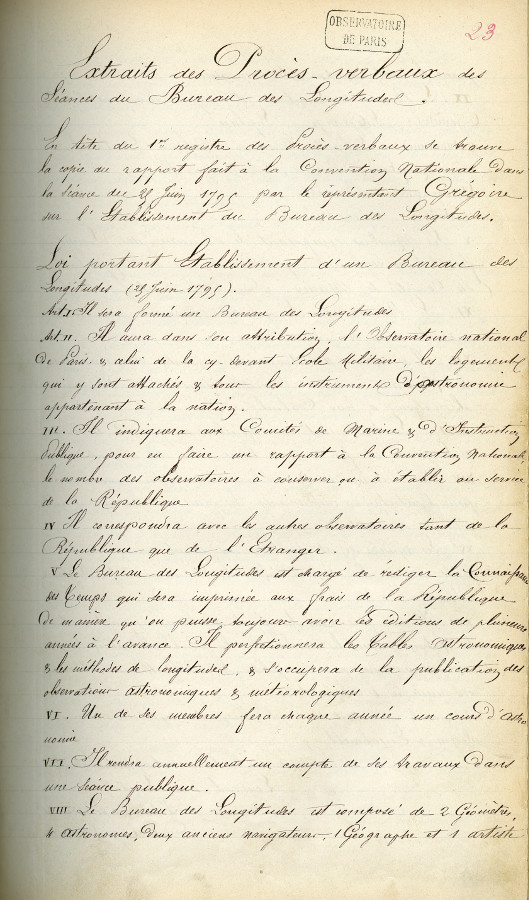 OBSERVATOIRE
DE PARIS
23
Extraits des Procès-verbaux des
Séances du Bureau des Longitudes.
En tête du 1er registre des Procès-verbaux se trouve
la copie du rapport fait à la Convention Nationale dans
la séance du 25 Juin 1795 par le représentant Grégoire
sur l'Etablissement du Bureau des Longitudes.
Loi portant Etablissement d'un Bureau des
Longitudes (25 Juin 1795).
Art. I. Il sera formé un Bureau des Longitudes
Art. II. Il aura dans son attribution, l'Observatoire national
de Paris & celui de la cy-devant École Militaire, les logements
qui y sont attachés & tous les instruments d'astronomie
appartenant à la nation.
III. Il indiquera aux Comités de Marine & d'Instruction
Publique, pour en faire un rapport à la Convention Nationale
le nombre des observatoires à conserver ou à établir au service
de la République
IV Il correspondra avec les autres observatoires tant de la
République que de l'Etranger.
V Le Bureau des Longitudes est chargé de rédiger la Connaissance
des Temps qui sera imprimée aux frais de la République
de manière qu'on puisse toujours avoir les éditions de plusieurs
années à l'avance. Il perfectionnera les Tables astronomiques
& les méthodes de longitudes, & s'occupera de la publication des
observations astronomiques & météorologiques
VI. Un de ses membres fera chaque année un cours d'astro
nomie
VII. Il rendra annuellement un compte de ses travaux dans
une séance publique.
VIII Le Bureau des Longitudes est composé de 2 Géomètres,
4 astronomes, deux anciens navigateurs, 1 Géographe et 1 artiste